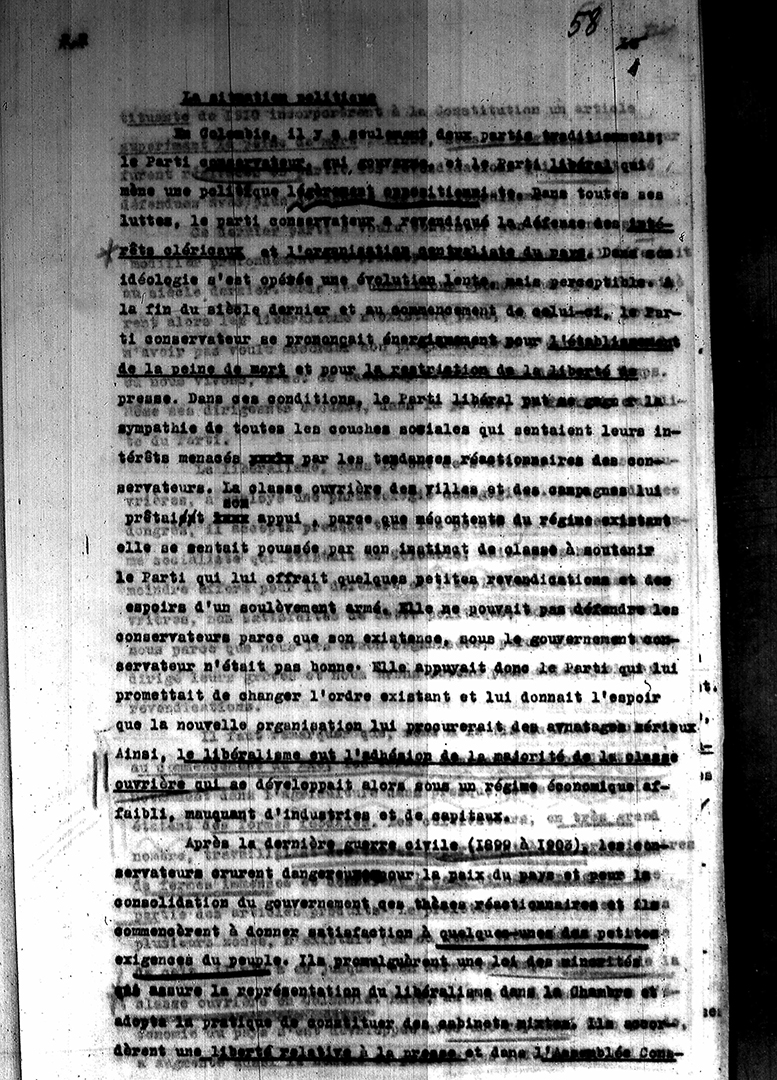 58
La situation politique
En Colombie, il y a seulement deux partis traditionnels;
le Parti conservateur, qui gouverne, et le Parti libéral qui
mène une politique légèrement oppositionniste. Dans toutes ses
luttes, le parti conservateur a revendiqué la défense des inté-
rêts cléricaux et l'organisation centraliste du pays. Dans son
idéologie s'est opérée une évolution lente, mais perceptible. A
la fin du siècle dernier et au commencement de celui-ci, le Par-
ti conservateur se prononçait énergiquement pour l'établissement
de la peine de mort et pour la restriction de la liberté de
presse. Dans ces conditions, le Parti libéral put se gagner la
sympathie de toutes les couches sociales qui sentaient leurs in-
térêts menacés par les tendances réactionnaires des con-
servateurs. La classe ouvrière des villes et des campagnes lui
son
prêtait appui, parce que mécontente du régime existant
elle se sentait poussée par son instinct de classe à soutenir
le Parti qui lui offrait quelques petites revendications et des
espoirs d'un soulèvement armé. Elle ne pouvait pas défendre les
conservateurs parce que son existance, sous le gouvernement con-
servateur n'était pas bonne. Elle appuyait donc le Parti qui lui
promettait de changer l'ordre existant et lui donnait l'espoir
que la nouvelle organisation lui procurerait des avnatages sérieux
Ainsi, le libéralisme eut l'adhésion de la majorité de la classe
ouvrière qui se développait alors sous un régime économique af-
faibli, mauquant d'industries et de capitaux.
Après la dernière guerre civile (1899 à 1903), les con-
servateurs crurent dangereuses pour la paix du pays et pour la
consolidation du gouvernement des thèses réactionnaires et ils
commencèrent à donner satisfaction à quelques-unes des petites
exigences du peuple. Ils promulguèrent une loi des minorités
qui assure la représentation du libéralisme dans la Chambre et
adopta la pratique de constituer des cabinets mixtes. Ils accor-
dèrent une liberté relative à la presse et dans l'Assemblée Cons-